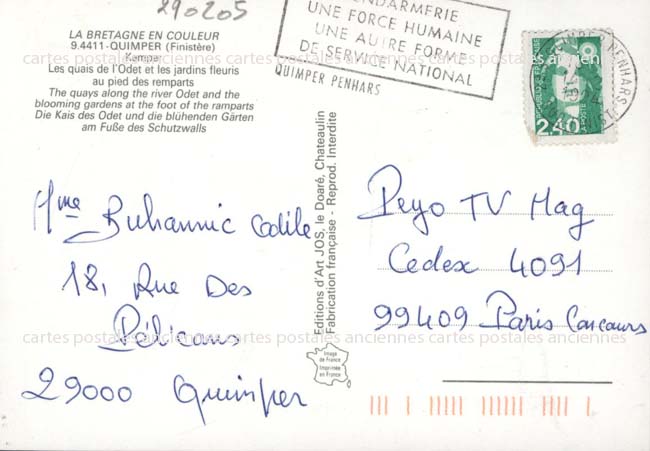 290205
LA BRETAGNE EN COULEUR
9.4411 - QUIMPER (Finistère)
Kemper
Les quais de l'Odet et les jardins fleuris
au pied des remparts
The quays along the river Odet and the
blooming gardens at the foot of the ramparts
Die Kais des Odet und die blühenden Gärten
am Fuße des Schutzwalls
GENDARMERIE
UNE FORCE HUMAINE
UNE AUTRE FORME
DE SERVICE NATIONAL
QUIMPER PENHARS
2,40
cartes postales anciennes cartes postales anciennes cartes postales anciennes
Editions d'Art JOS, le Doaré, Chateaulin
Fabrication française - Reprod. Interdite
Mme Buhannic Odile
18, Rue Des
Pélicans
29000 Quimper
Peyo TV Mag
Cedex 4091
99409 Paris Concours
cartes postales anciennes cartes postales anciennes cartes postales anciennes
Image
de France
Imprimée
en France